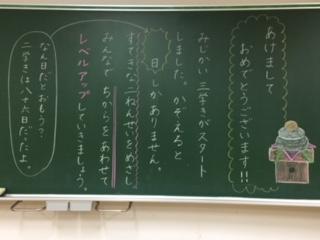 あけまして
おめでとうございます!!
みじかい 三学きがスタート
しました。かぞえると
日しかありません。
すてきな二ねんせいをめざし
みんなで ちからをあわせて
レベルアップしていきましょう。
なん日だとおもう?
二学きは八十六日だったよ。